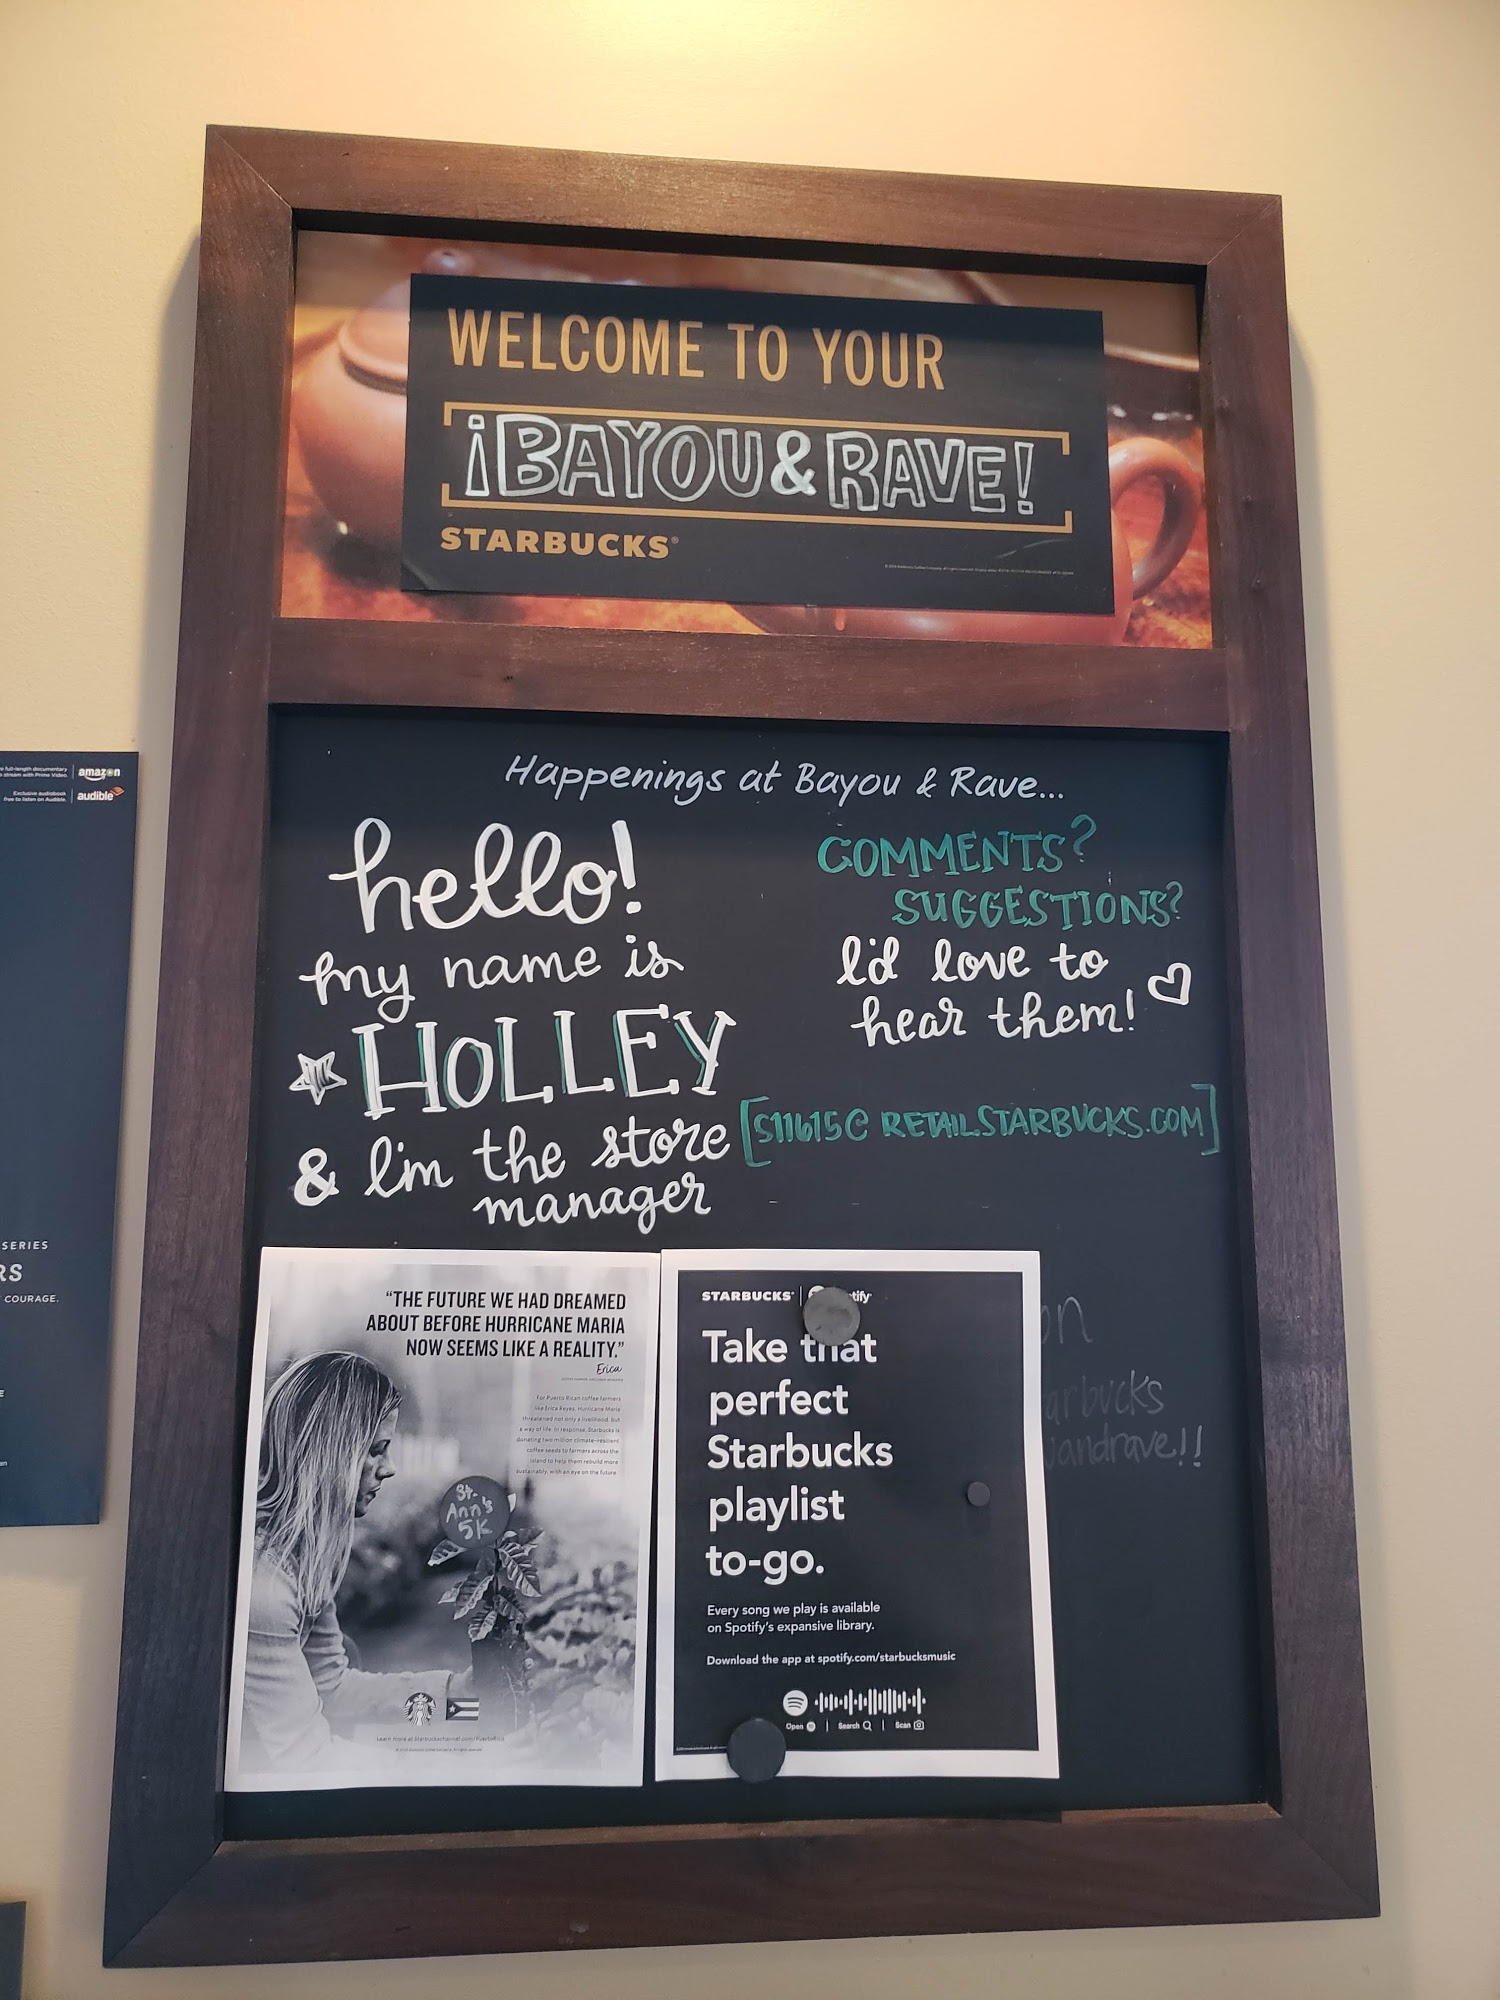 WELCOME TO YOUR
¡BAYOU & RAVE!
STARBUCKS®
Happenings at Bayou & Rave...
hello!
my name is
HOLLEY
& I'm the store
manager
COMMENTS?
SUGGESTIONS?
I'd love to
hear them!
[S11615@RETAIL.STARBUCKS.COM]
"THE FUTURE WE HAD DREAMED
ABOUT BEFORE HURRICANE MARIA
NOW SEEMS LIKE A REALITY."
Erica
For Puerto Rican coffee farmers
like Erica Reyes, Hurricane Maria
threatened not only a livelihood, but
a way of life. In response, Starbucks is
donating two million climate-resilient
coffee seeds to farmers across the
island to help them rebuild more
sustainably, with an eye on the future.
St.
Ann's
5K
Learn more at Starbuckschannel.com/PuertoRico
STARBUCKS® | tify
Take that
perfect
Starbucks
playlist
to-go.
Every song we play is available
on Spotify's expansive library.
Download the app at spotify.com/starbucksmusic
Open | Search | Scan
on
arbucks
uandrave!!
full-length documentary
stream with Prime Video.
amazon
Exclusive audiobook
free to listen on Audible.
audible
SERIES
RS
COURAGE.